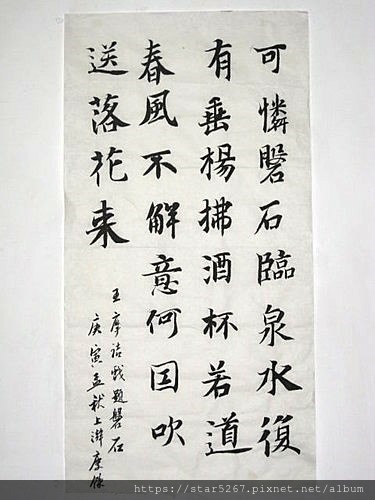 可憐磐石臨泉水復
有垂楊拂酒杯若道
春風不解意何因吹
送落花来
王摩詰戲題磐石
庚寅孟秋上澣
https://star5267.pixnet.net/album